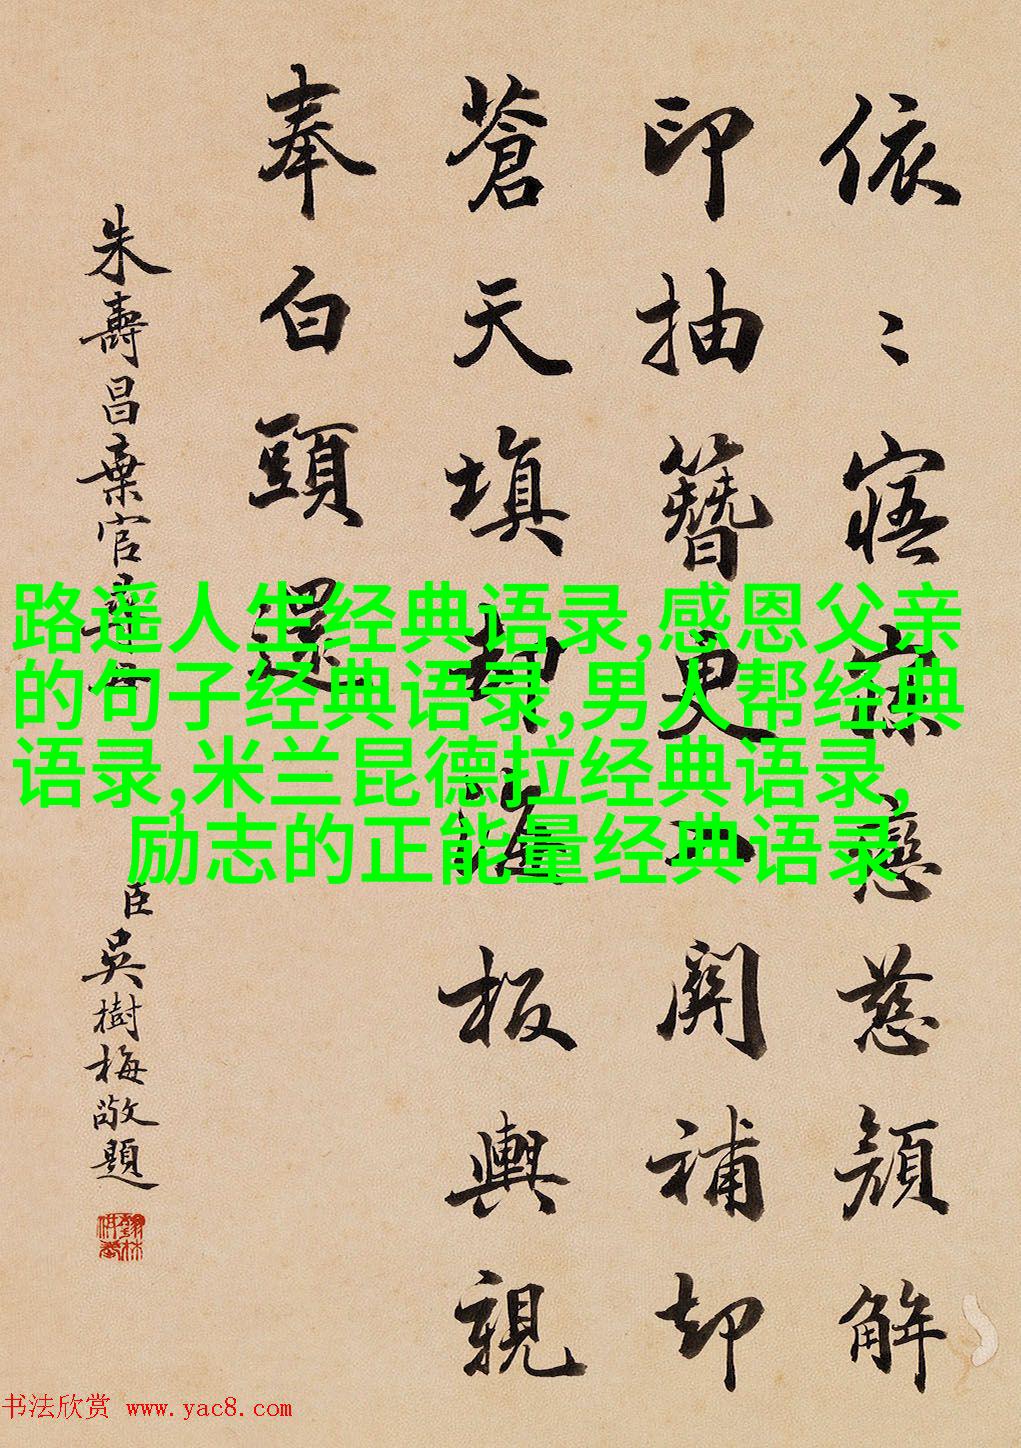 依〻寤寐戀慈顏解
印抽簪更不關補却
蒼天填却海板輿親
奉白頭還
朱壽昌棄官尋母
臣吳樹梅敬題
路遥人生经典语录,感恩父亲
的句子经典语录,男人帮经典
语录,米兰昆德拉经典语录,
励志的正能量经典语录
书法欣赏 www.yac8.com